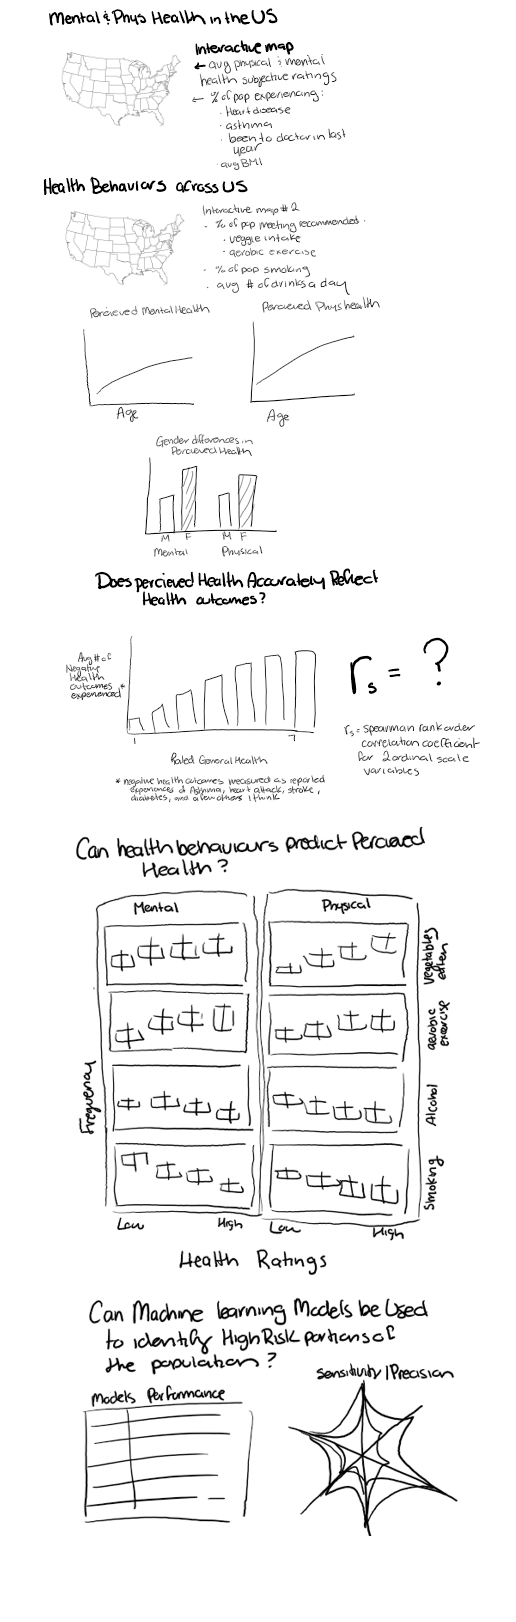 Mental & Phys Health in the US
Interactive map
← avg physical & mental
health subjective ratings
← % of pop experiencing:
· Heart disease
· asthma
· been to doctor in last
year
· avg BMI
Health Behaviors across US
Interactive map #2
- % of pop meeting recommended.
· veggie intake
· aerobic exercise
· % of pop smoking
· avg # of drinks a day
Percieved Mental Health
Percieved Phys health
Age
Age
Gender differences in
Percieved Health
M F M F
Mental Physical
Does percieved Health Accurately Reflect
Health outcomes?
Avg # of
Negative
Health
outcomes *
experienced
rs = ?
rs = spearman rank order
correlation coefficient
for 2 ordinal scale
variables
1 7
Rated General Health
* negative health outcomes measured as reported
experiences of Asthma, heart attack, stroke,
diabetes, and a few others I think
Can health behaviours predict Percieved
Health?
Mental
Physical
Vegetables
eaten
aerobic
exercise
Frequency
Alcohol
Smoking
Low High Low High
Health Ratings
Can Machine learning Models be Used
to identify High Risk portions of
the population?
Models Performance
Sensitivity / Precision